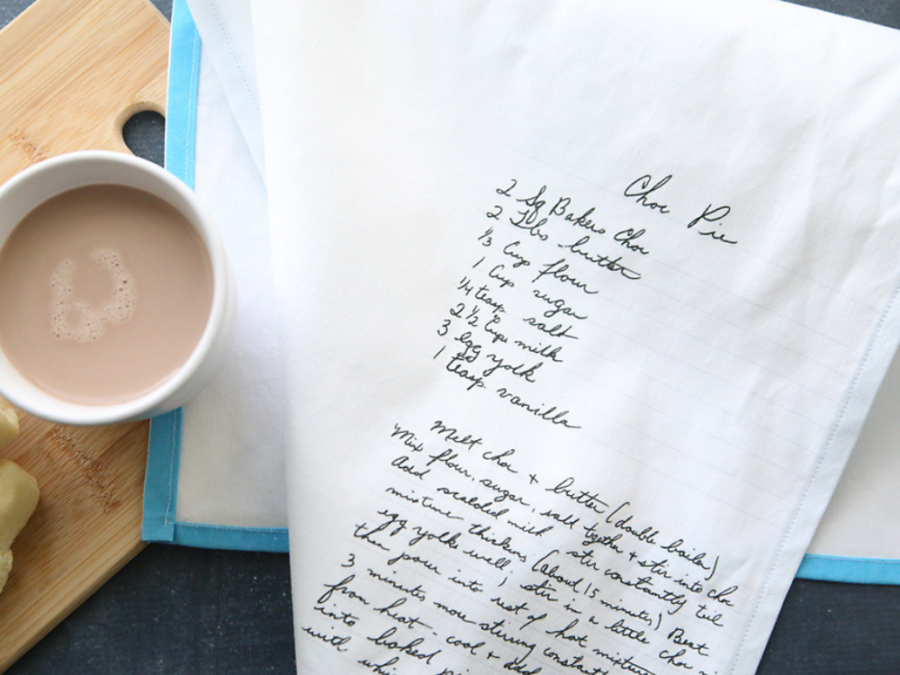 Choc Pie
2 Sq Bakers Choc
2 Tbs butter
1/3 Cup flour
1 Cup sugar
1/4 teasp salt
2 1/2 Cups milk
3 egg yolk
1 teasp vanilla
Melt choc + butter (double boiler)
Mix flour, sugar, salt togeth + stir into choc
Add scalded milk stir constantly till
mixture thickens (about 15 minutes) Beat
egg yolks well, stir in a little choc
then pour into rest of hot mixture
3 minutes more stirring constantly
from heat - cool + add
into baked
with